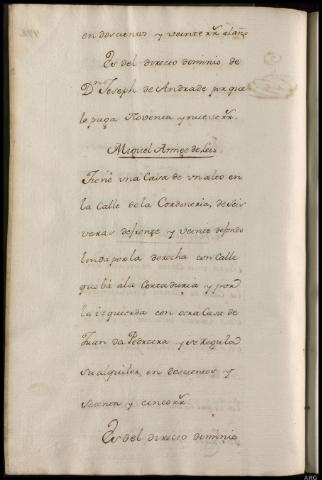 en doscientos y veinte rr.ˢ al año
Es del directo dominio de
Dⁿ Joseph de Andrade por que
le paga Noventa y nueve rr.ˢ
Miguel Amigo de Leis
Tiene una Casa de un alto en
la Calle de la Cordoneria, de seis
varas de frente y veinte de fondo
linda por la derecha con Calle
que bà ala Cortaduria y por
la izquierda con otra Casa de
Juan da Pedreira y se Regula
su alquiler en doscientos y
y cinco rr.ˢ
Es del directo dominio
ARG